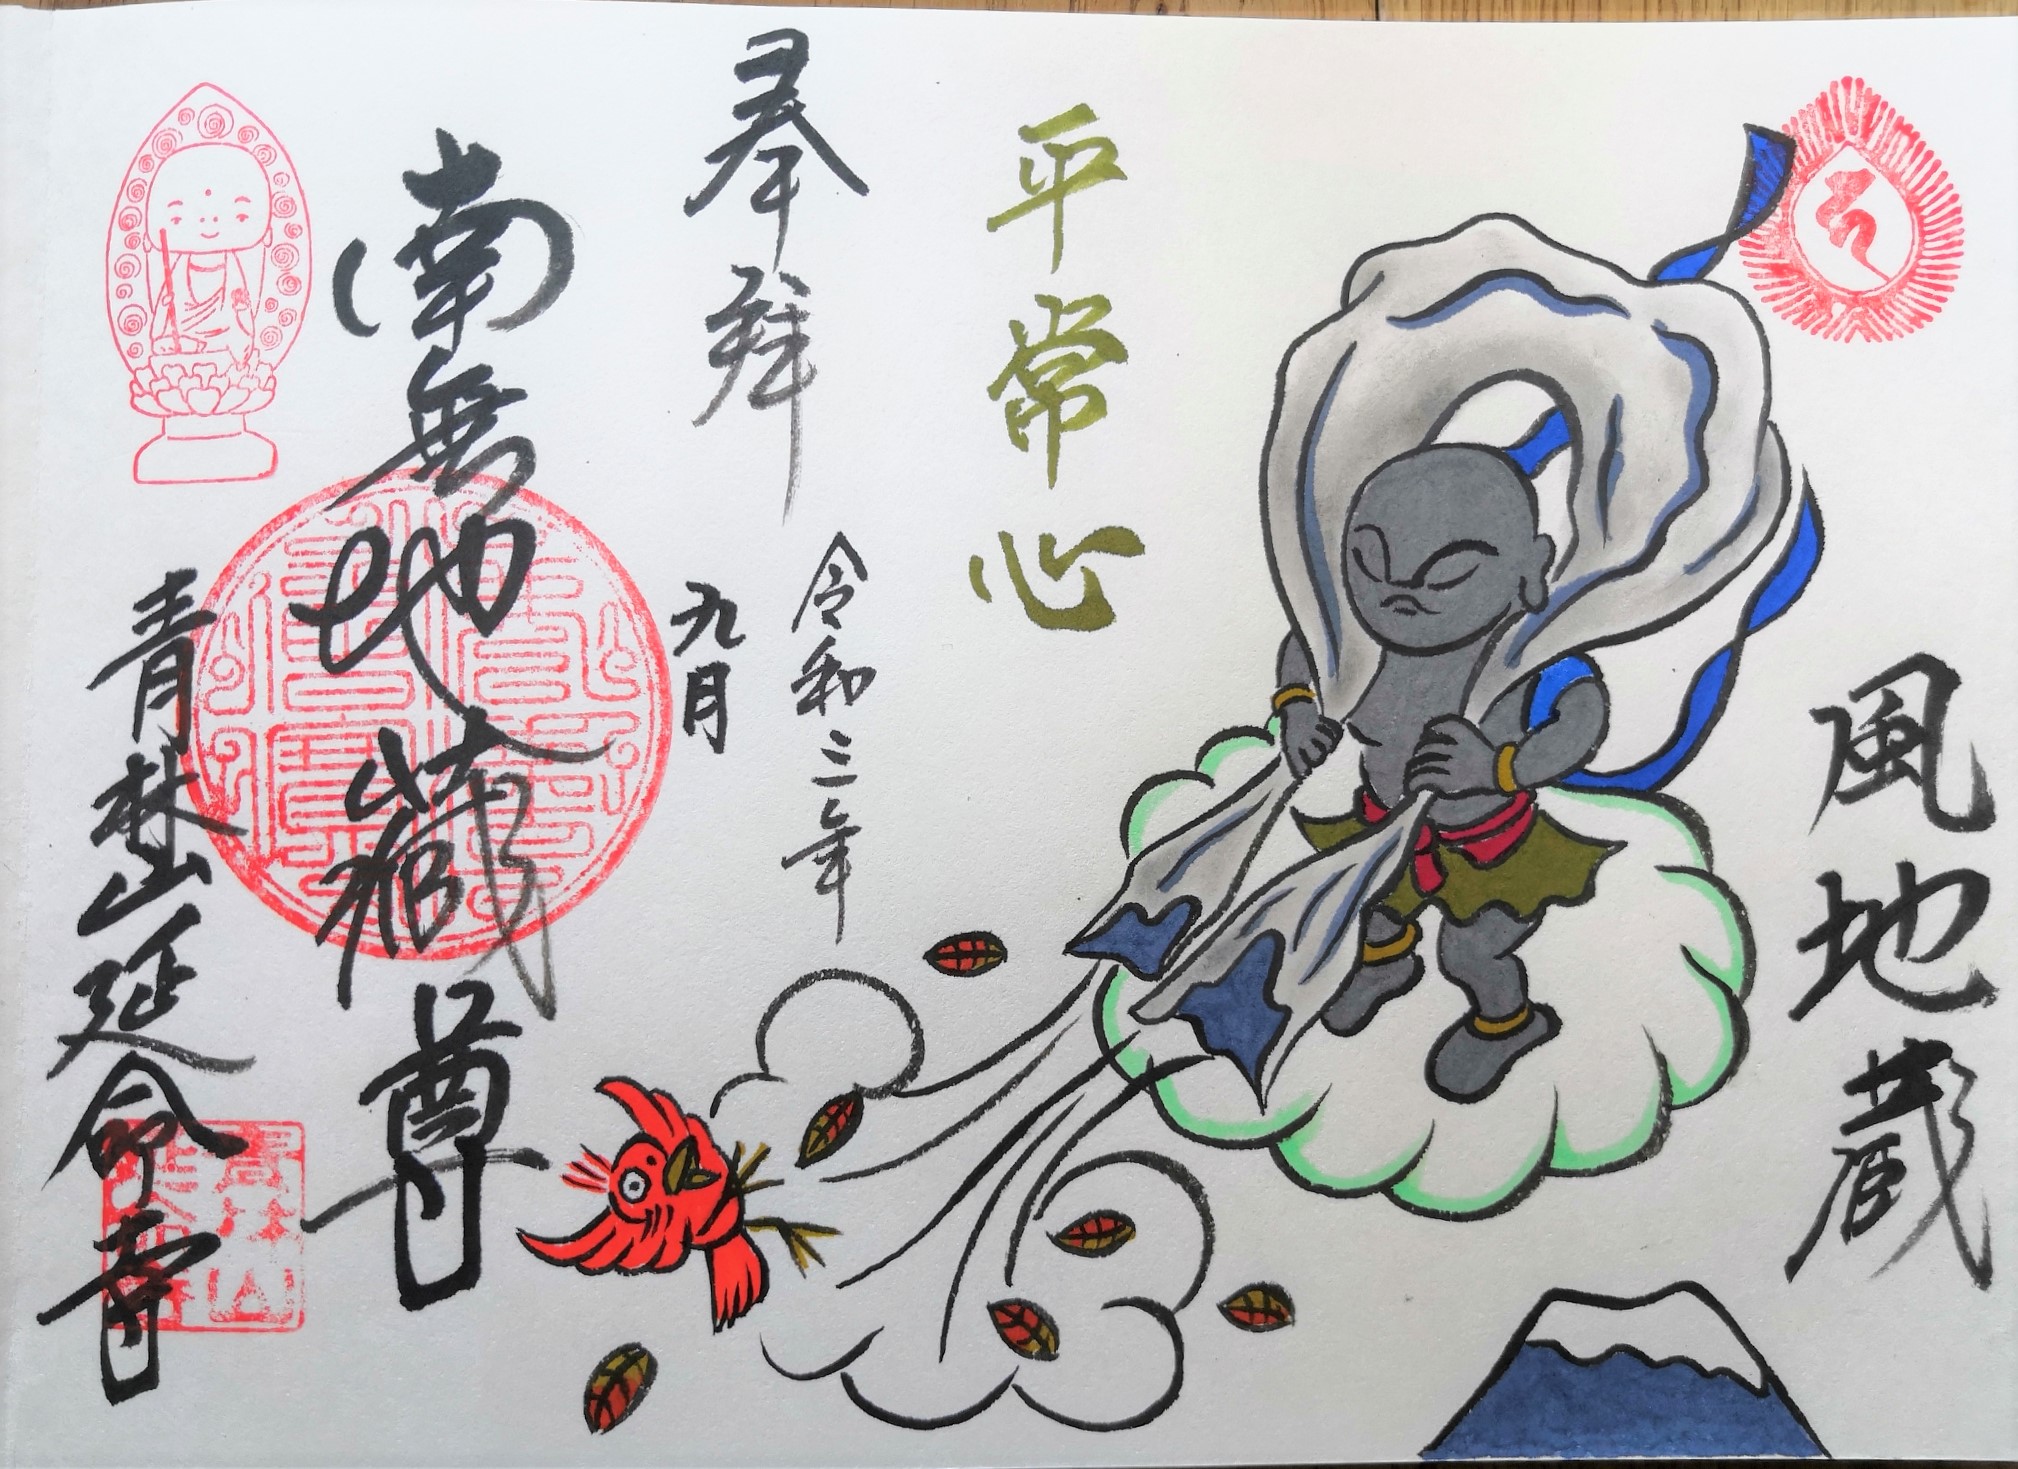 風地蔵
平常心
奉拝
令和三年
九月
南無地蔵尊
青林山延命寺